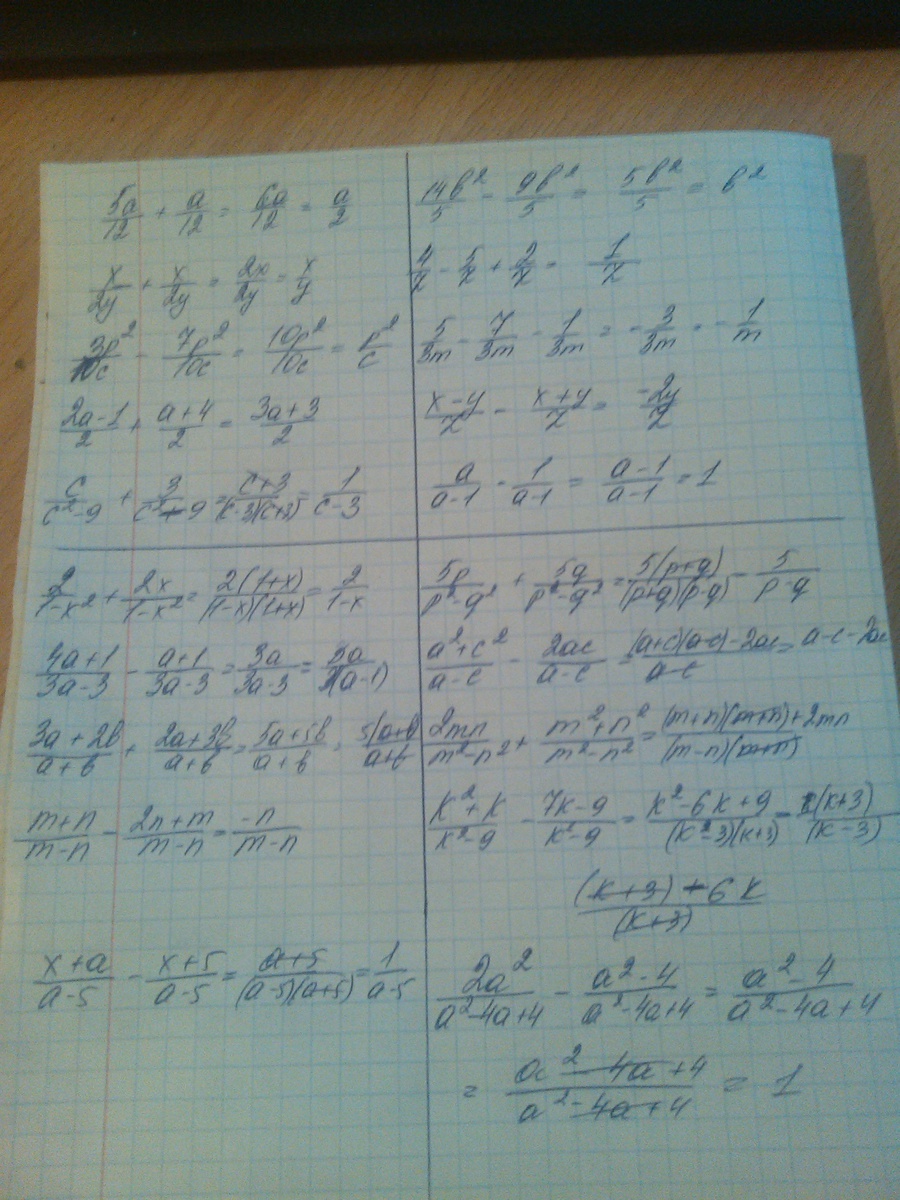 5a/12 + a/12 = 6a/12 = a/2
x/2y + x/2y = 2x/2y = x/y
3p²/10c - 7p²/10c = 10p²/10c = p²/c
2a-1/2 + a+4/2 = 3a+3/2
c/c²-9 + 3/c²-9 = c+3/(c-3)(c+3) = 1/c-3
14b²/5 - 9b²/5 = 5b²/5 = b²
4/z - 5/z + 2/z = 1/z
5/3m - 7/3m - 1/3m = -3/3m = -1/m
x-y/z - x+y/z = -2y/z
a/a-1 - 1/a-1 = a-1/a-1 = 1
2/1-x² + 2x/1-x² = 2(1+x)/(1-x)(1+x) = 2/1-x
4a+1/3a-3 - a+1/3a-3 = 3a/3a-3 = 3a/3(a-1)
3a+2b/a+b + 2a+3b/a+b = 5a+5b/a+b = 5(a+b/a+b
m+n/m-n - 2n+m/m-n = -n/m-n
x+a/a-5 - x+5/a-5 = a+5/(a-5)(a+5) = 1/a-5
5p/p²-q² + 5q/p²-q² = 5(p+q)/(p+q)(p-q) = 5/p-q
a²+c²/a-c - 2ac/a-c = (a+c)(a-c)-2ac/a-c = a-c-2ac
2mn/m²-n² + m²+n²/m²-n² = (m+n)(m+n)+2mn/(m-n)(m+n)
k²+k/k²-9 - 7k-9/k²-9 = k²-6k+9/(k-3)(k+3) = (k+3)/(k-3)
(k+3)-6k/(k+3)
2a²/a²-4a+4 - a²-4/a²-4a+4 = a²-4/a²-4a+4
= a²-4a+4/a²-4a+4 = 1